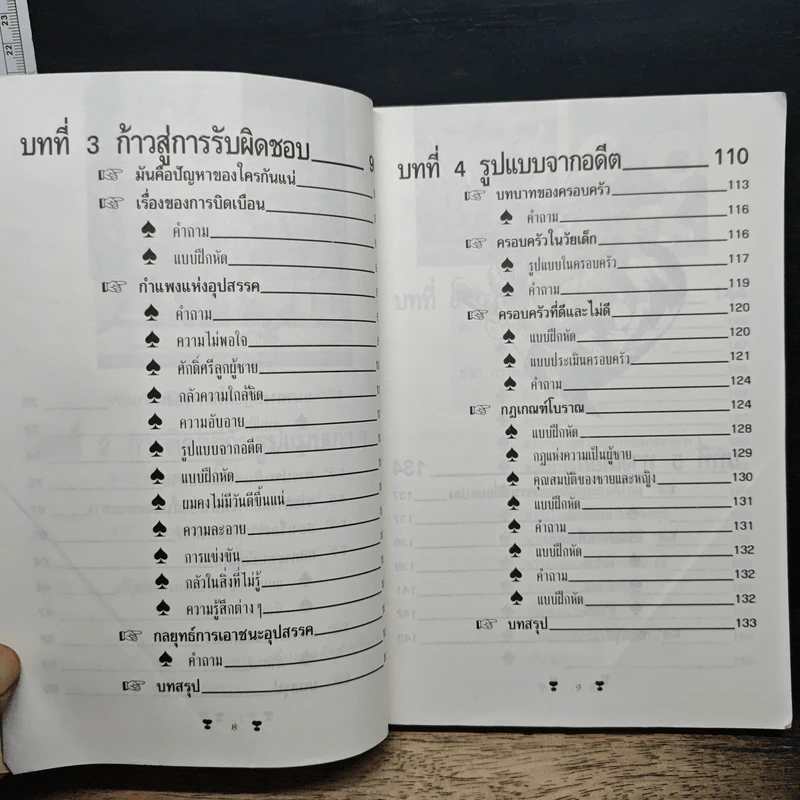 บทที่ 3 ก้าวสู่การรับผิดชอบ 9
มันคือปัญหาของใครกันแน่
เรื่องของการบิดเบือน
คำถาม
แบบฝึกหัด
กำแพงแห่งอุปสรรค
คำถาม
ความไม่พอใจ
ศักดิ์ศรีลูกผู้ชาย
กลัวความใกล้ชิด
ความอับอาย
รูปแบบจากอดีต
แบบฝึกหัด
ผมคงไม่มีวันดีขึ้นแน่
ความละอาย
การแข่งขัน
กลัวในสิ่งที่ไม่รู้
ความรู้สึกต่าง ๆ
กลยุทธ์การเอาชนะอุปสรรค
คำถาม
บทสรุป
8
บทที่ 4 รูปแบบจากอดีต 110
บทบาทของครอบครัว 113
คำถาม 116
ครอบครัวในวัยเด็ก 116
รูปแบบในครอบครัว 117
คำถาม 119
ครอบครัวที่ดีและไม่ดี 120
แบบฝึกหัด 120
แบบประเมินครอบครัว 121
คำถาม 124
กฎเกณฑ์โบราณ 124
แบบฝึกหัด 128
กฎแห่งความเป็นผู้ชาย 129
คุณสมบัติของชายและหญิง 130
แบบฝึกหัด 131
คำถาม 131
แบบฝึกหัด 132
คำถาม 132
แบบฝึกหัด 132
บทสรุป 133
9